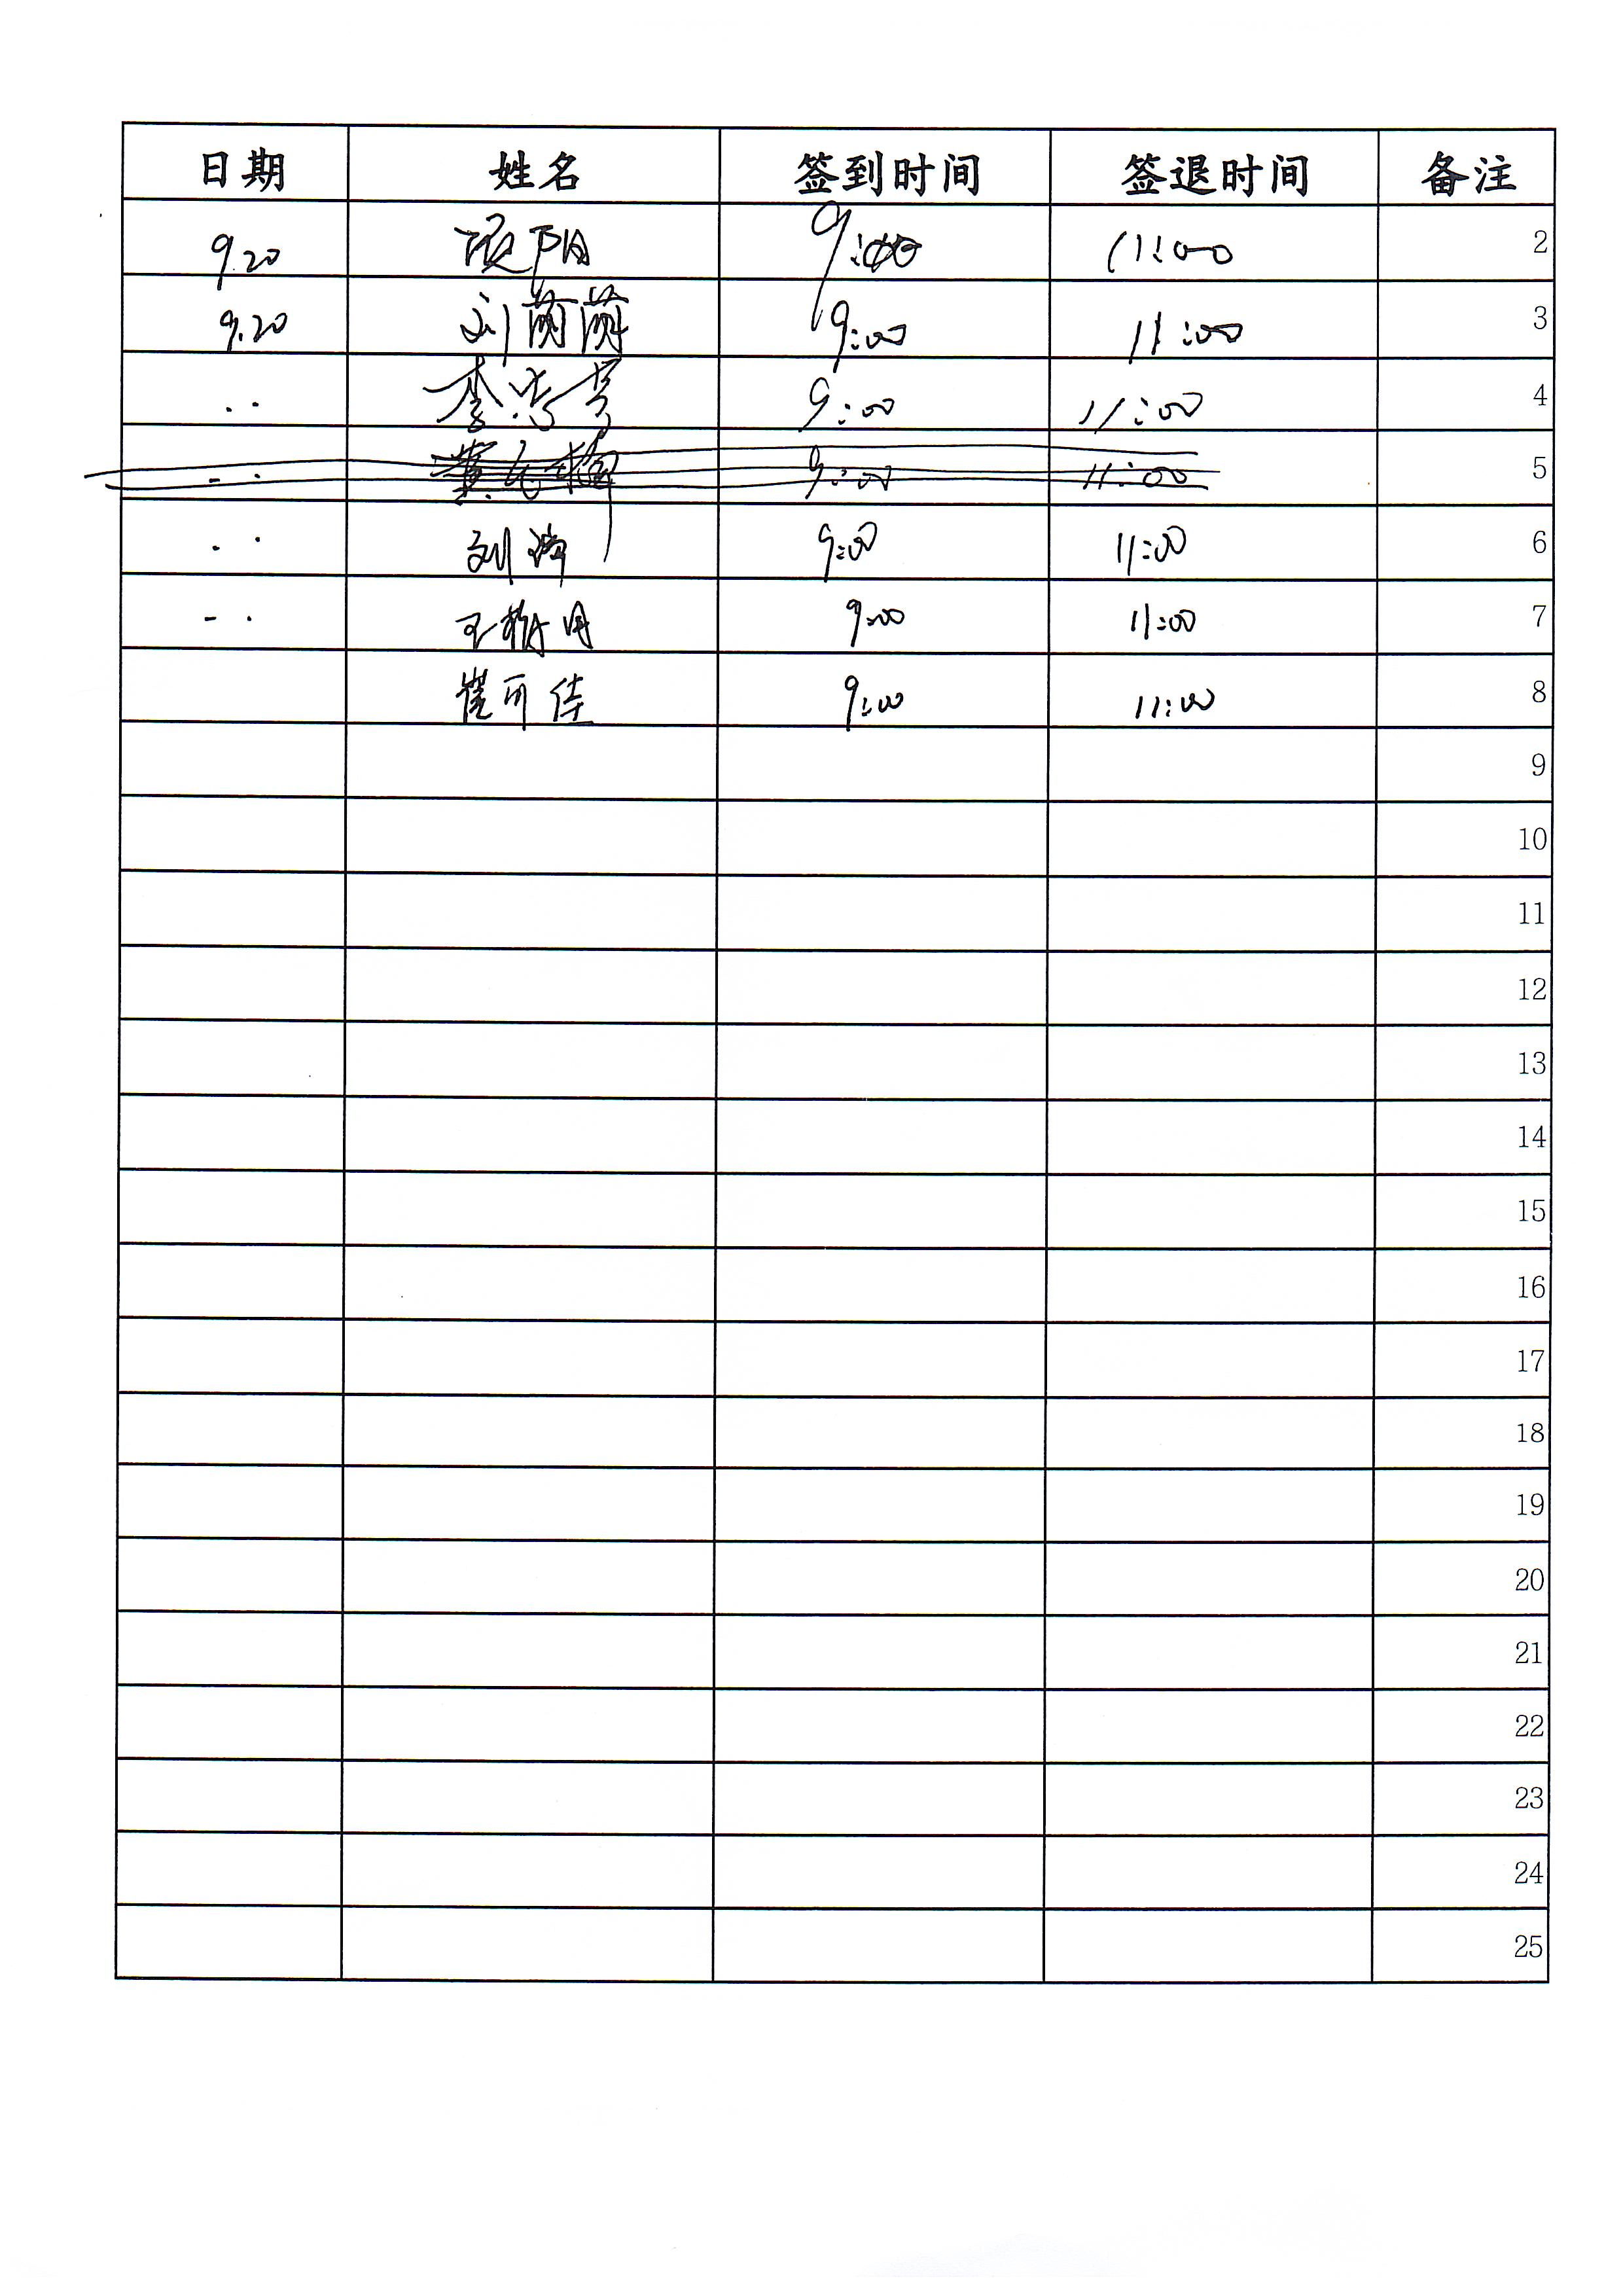 日期 姓名 签到时间 签退时间 备注
9.20 阳 9:00 11:00 2
9.20 刘茵茵 9:00 11:00 3
·· 李秀芳 9:00 11:00 4
-· 9:00 11:00 5
·· 刘 9:00 11:00 6
-· 王 9:00 11:00 7
崔可佳 9:00 11:00 8
9
10
11
12
13
14
15
16
17
18
19
20
21
22
23
24
25